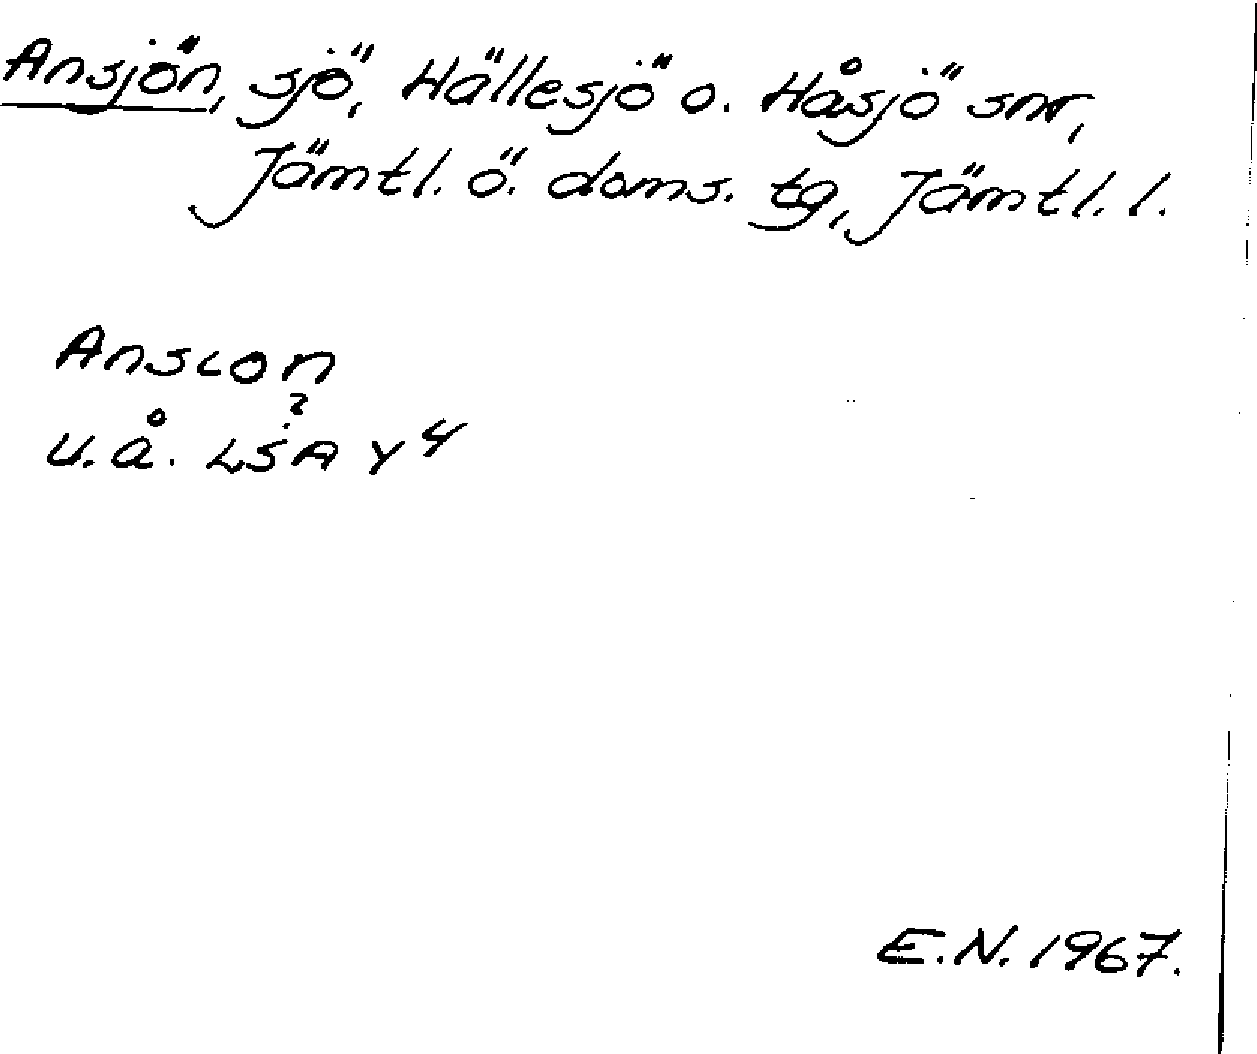 Ansjön, sjö, Hällesjö o. Håsjö snr,
Jämtl. ö. doms. tg, Jämtl. l.
Anscon
?
u.å. LSA Y 4
E.N. 1967.